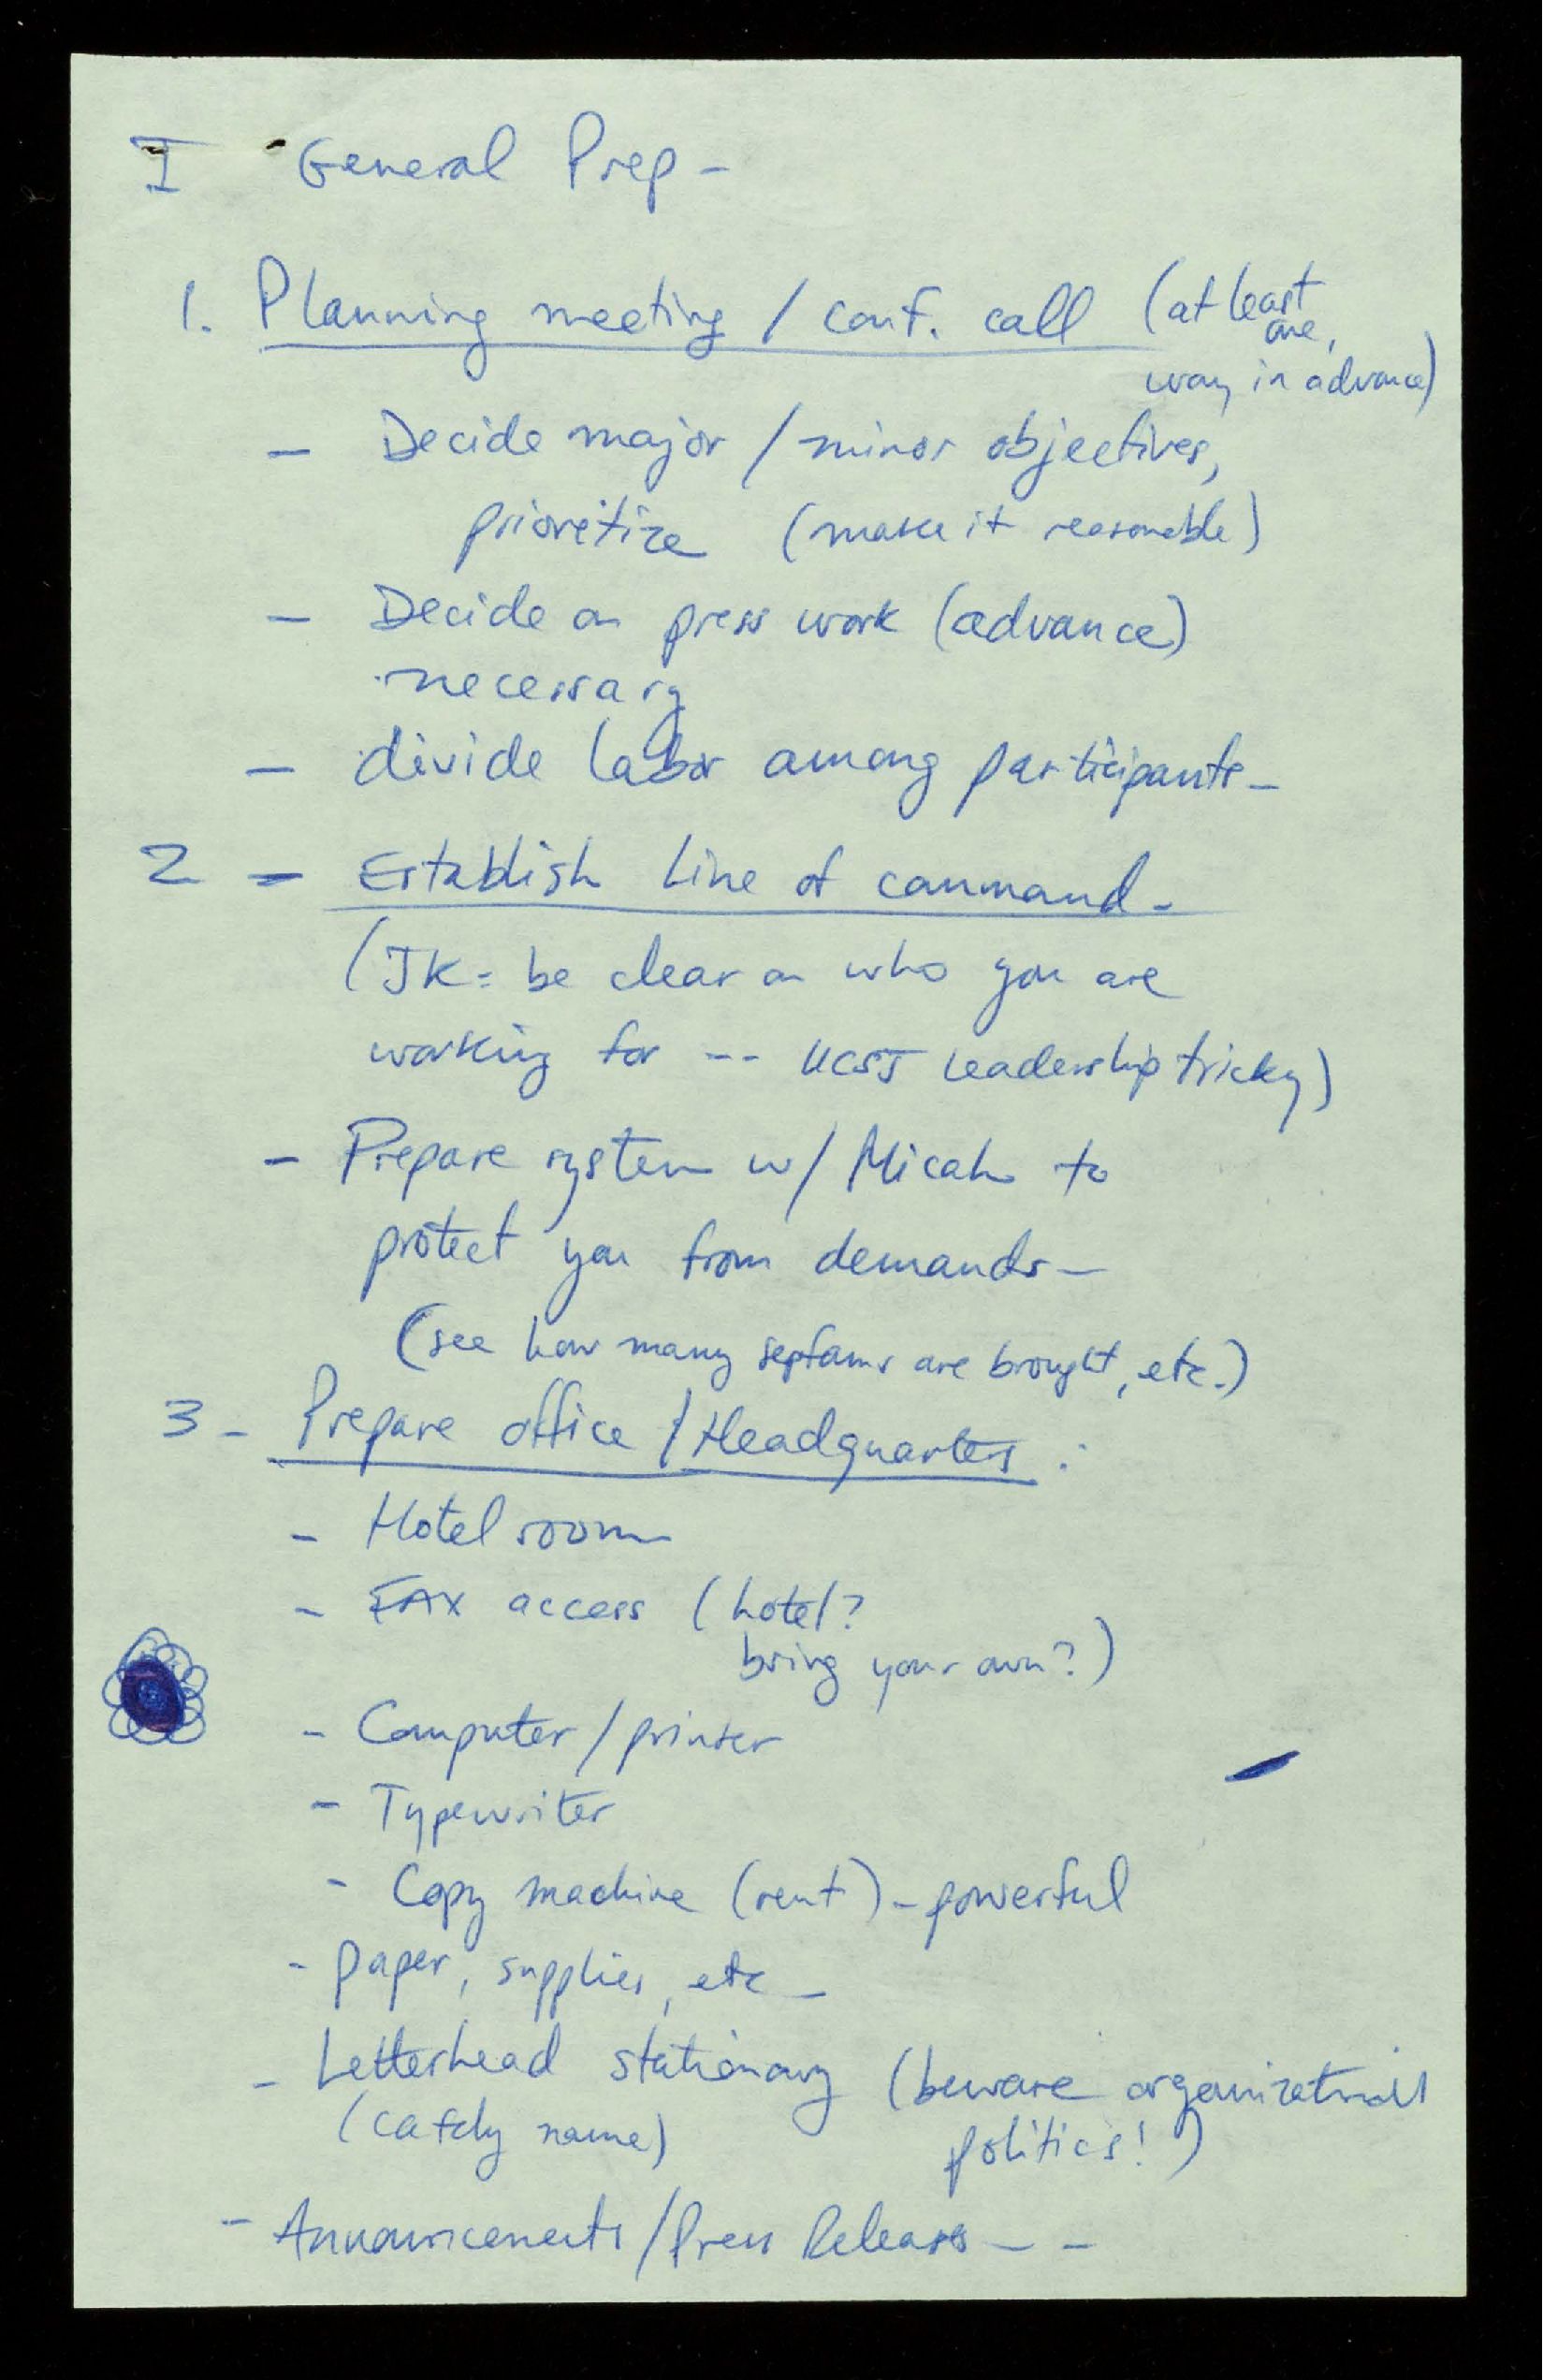 I General Prep -
1. Planning meeting / conf. call (at least
one,
way in advance)
- Decide major / minor objectives,
prioritize (make it reasonable)
- Decide on press work (advance)
necessary
- divide labor among participants -
2 - Establish line of command -
(JK = be clear on who you are
working for -- UCSJ leadership tricky)
- Prepare system w/ Micah to
protect you from demands -
(see how many sepfams are brought, etc.)
3 - Prepare office / Headquarters :
- Hotel room
- FAX access (hotel?
bring your own?)
- Computer / printer
- Typewriter
- Copy machine (rent) - powerful
- paper, supplies, etc -
- Letterhead stationary (beware organizational
(catchy name) politics!)
- Announcements / Press Releases - -